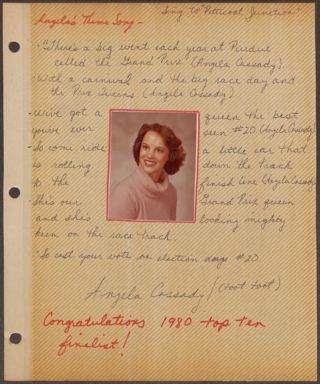 Angela's Theme Song -
Sing to "Petticoat Junction"
- "There's a big event each year at Purdue
called the Grand Prix (Angela Cassady).
With a carnival and the big race day and
the Prix Queens (Angela Cassady)
- We've got a queen the best
you've ever seen #20 (Angela Cassady)
- So come ride a little car that
is rolling down the track
to the finish line (Angela Cassady)
She's our Grand Prix queen
and she's looking mighty
keen on the race track.
"So cast your vote on election days #20
Angela Cassady! (toot toot)
Congratulations 1980 top ten
finalist!